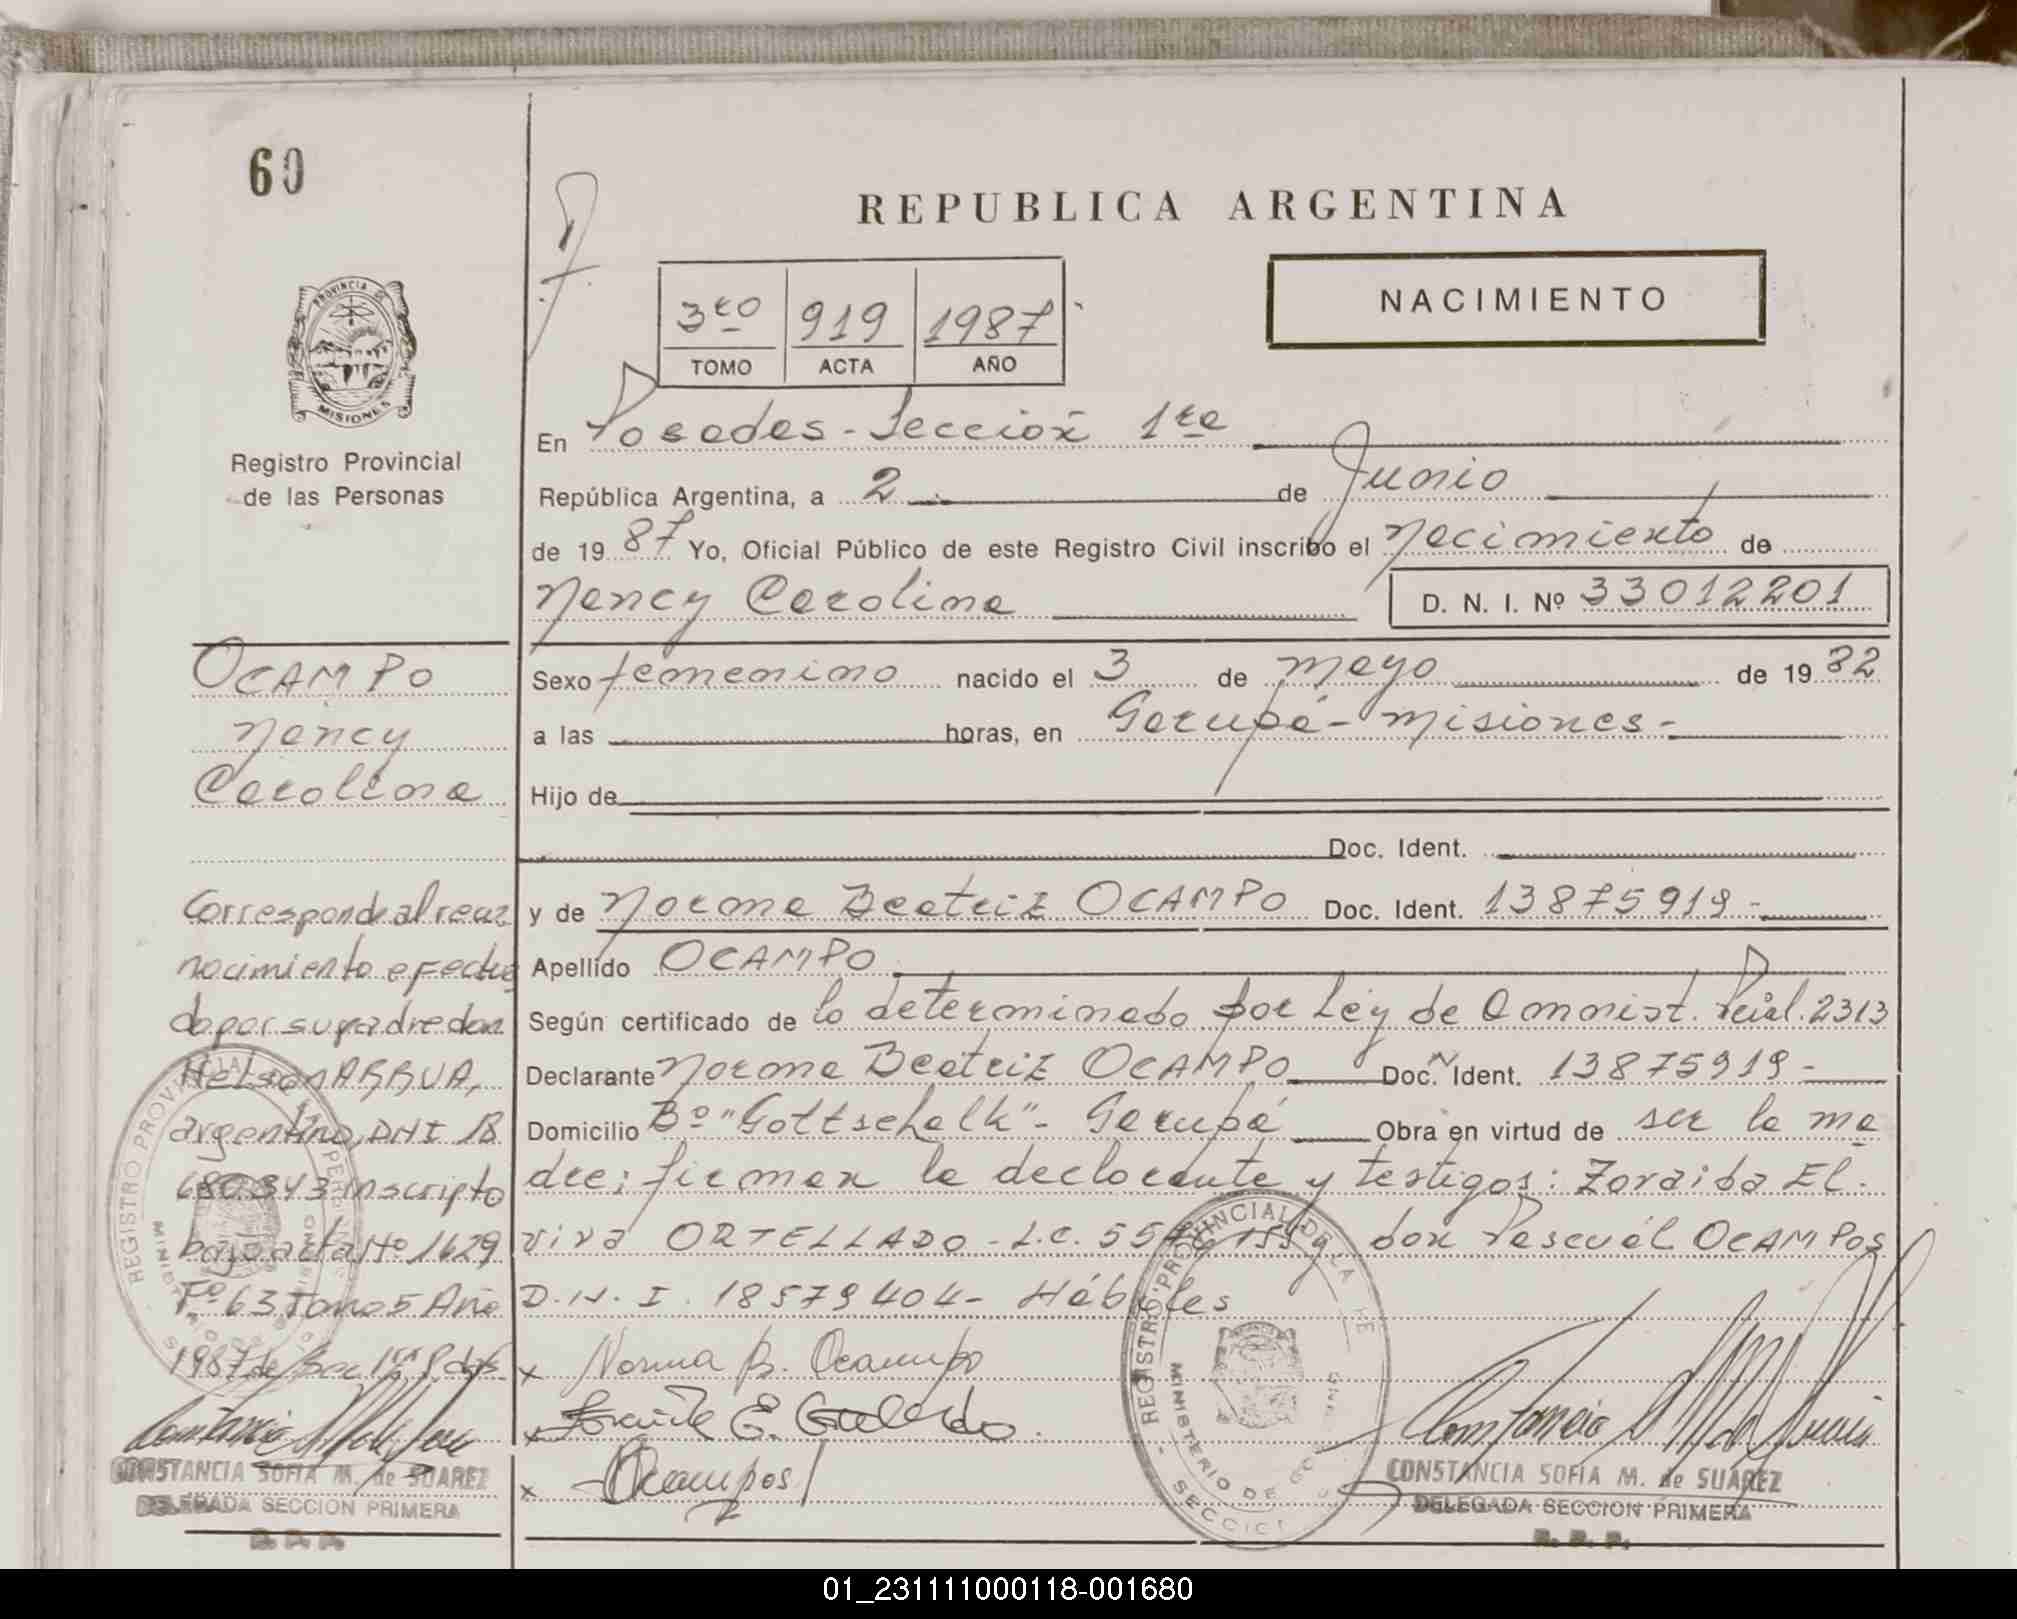 60
REPUBLICA ARGENTINA
NACIMIENTO
3ro 919 1987
TOMO ACTA AÑO
PROVINCIA DE MISIONES
Registro Provincial
de las Personas
En Posadas - Sección 1ra
República Argentina, a 2 de Junio
de 1987 Yo, Oficial Público de este Registro Civil inscribo el Nacimiento de
Nancy Carolina D. N. I. Nº 33012201
OCAMPO
Nancy
Carolina
Sexo femenino nacido el 3 de mayo de 1982
a las horas, en Garupá - Misiones -
Hijo de
Doc. Ident.
y de Norma Beatriz OCAMPO Doc. Ident. 13875919 -
Apellido OCAMPO
Según certificado de lo determinado por Ley de Amnist. Pcial. 2313
Declarante Norma Beatriz OCAMPO Doc. Ident. 13875919 -
Domicilio Bº "Gottschalk" - Garupá Obra en virtud de ser la ma
dre; firman la declarante y testigos: Zoraida El
viva ORTELLADO - L.C. 55 don Pascual OCAMPOS
D.N.I. 18579404 - Hábiles
x Norma B. Ocampo
x
x Ocampos
Corresponde al reco
nocimiento efectua
do por su padre don
Nelson ARRUA,
argentino, DNI 18
680.343 inscripto
bajo acta Nº 1629
Fº 63 Tomo 5 Año
1987 de Sec 1ra Pdas
REGISTRO PROVINCIAL DE LAS PERSONAS
MINISTERIO DE GOBIERNO
CONSTANCIA SOFIA M. de SUAREZ
DELEGADA SECCION PRIMERA
R. P. P.
REGISTRO PROVINCIAL DE LA PE
MINISTERIO DE GOBIERNO
SECCION
CONSTANCIA SOFIA M. de SUAREZ
DELEGADA SECCION PRIMERA
R. P. P.
01_231111000118-001680